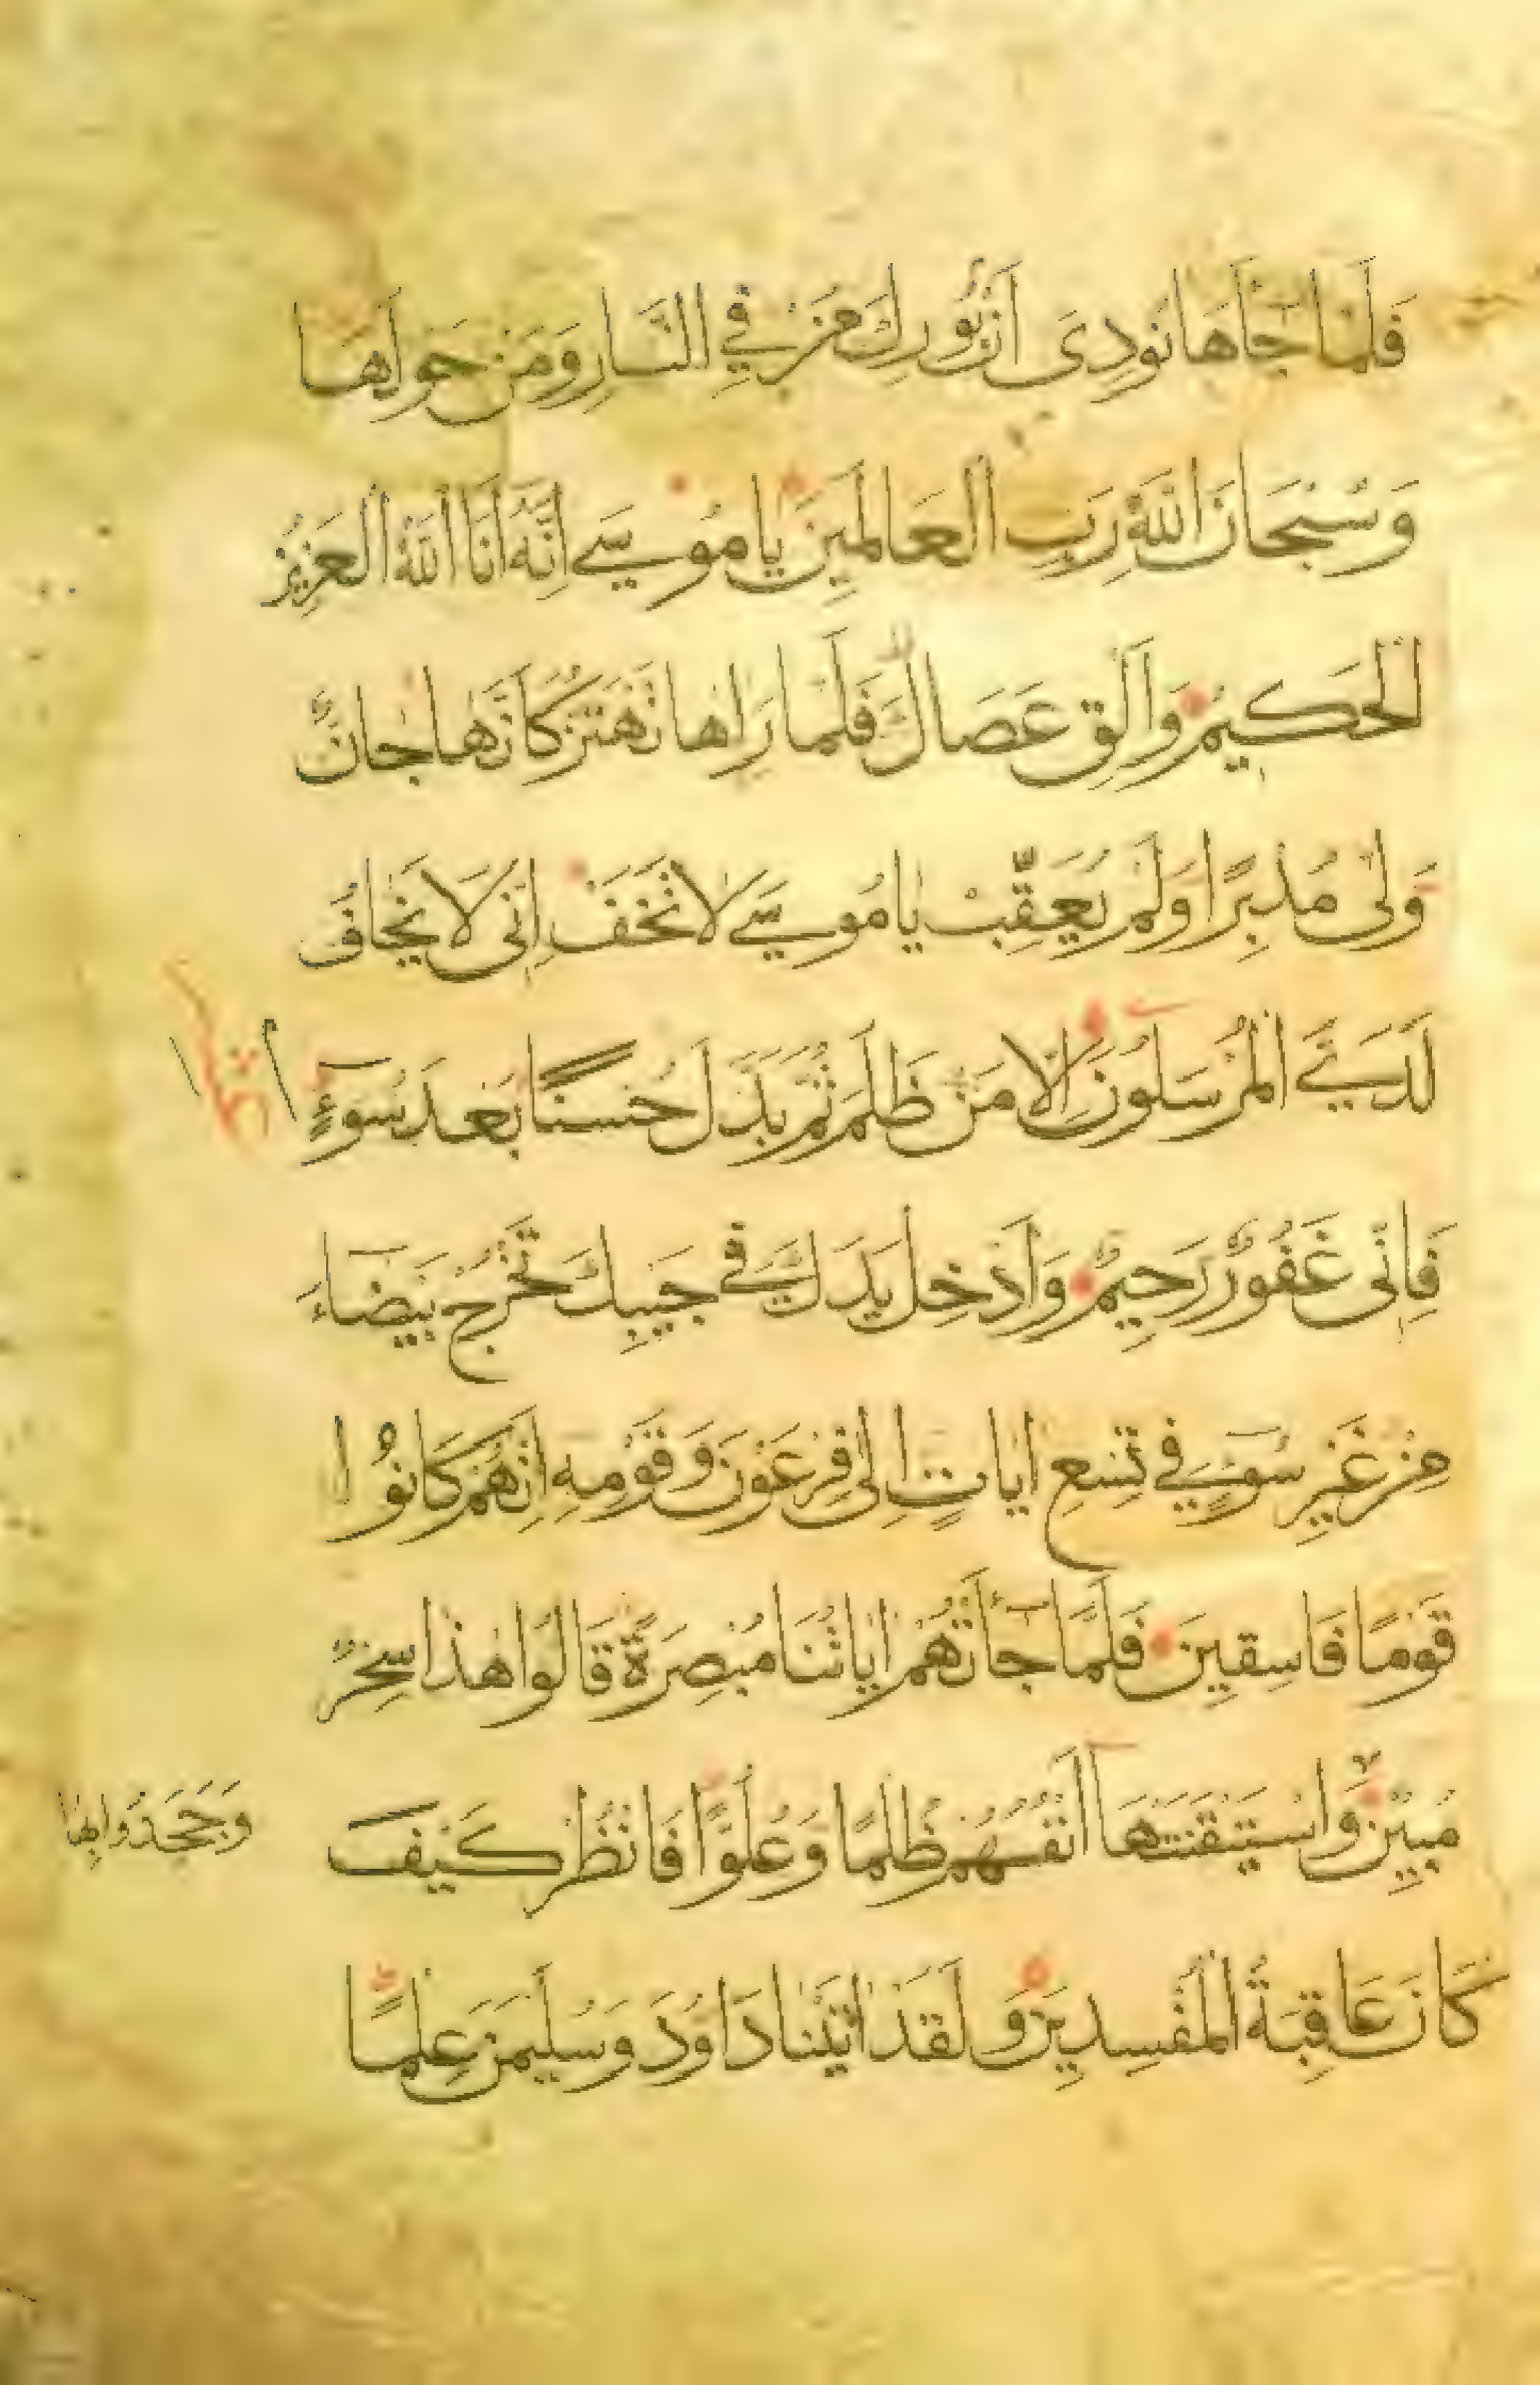 فَلَمَّا جَآَهَا نُودِىَ اَنْ بُورِكَ مَنْ فِي النَّارِ وَمَنْ حَوْلَهَا
وَسُبْحَانَ اللّٰهِ رَبِّ الْعَالَمِينَ يَا مُوسٰى اِنَّهُ اَنَا اللّٰهُ الْعَزِيزُ
الْحَكِيمُ وَاَلْقِ عَصَاكَ فَلَمَّا رَاٰهَا تَهْتَزُّ كَاَنَّهَا جَانٌّ
وَلّٰى مُدْبِرًا وَلَمْ يُعَقِّبْ يَا مُوسٰى لَا تَخَفْ اِنّٖى لَا يَخَافُ
لَدَيَّ الْمُرْسَلُونَ اِلَّا مَنْ ظَلَمَ ثُمَّ بَدَّلَ حُسْنًا بَعْدَ سُوٓءٍ
فَاِنّٖى غَفُورٌ رَحِيمٌ وَاَدْخِلْ يَدَكَ فِي جَيْبِكَ تَخْرُجْ بَيْضَاءَ
مِنْ غَيْرِ سُوٓءٍ فِي تِسْعِ اٰيَاتٍ اِلٰى فِرْعَوْنَ وَقَوْمِهِ اِنَّهُمْ كَانُوا
قَوْمًا فَاسِقِينَ فَلَمَّا جَآَتْهُمْ اٰيَاتُنَا مُبْصِرَةً قَالُوا هٰذَا سِحْرٌ
مُبِينٌ وَاسْتَيْقَنَتْهَا اَنْفُسُهُمْ ظُلْمًا وَعُلُوًّا فَانْظُرْ كَيْفَ
وَجَحَدُوا بِهَا
كَانَ عَاقِبَةُ الْمُفْسِدِينَ وَلَقَدْ اٰتَيْنَا دَاوُدَ وَسُلَيْمٰنَ عِلْمًا